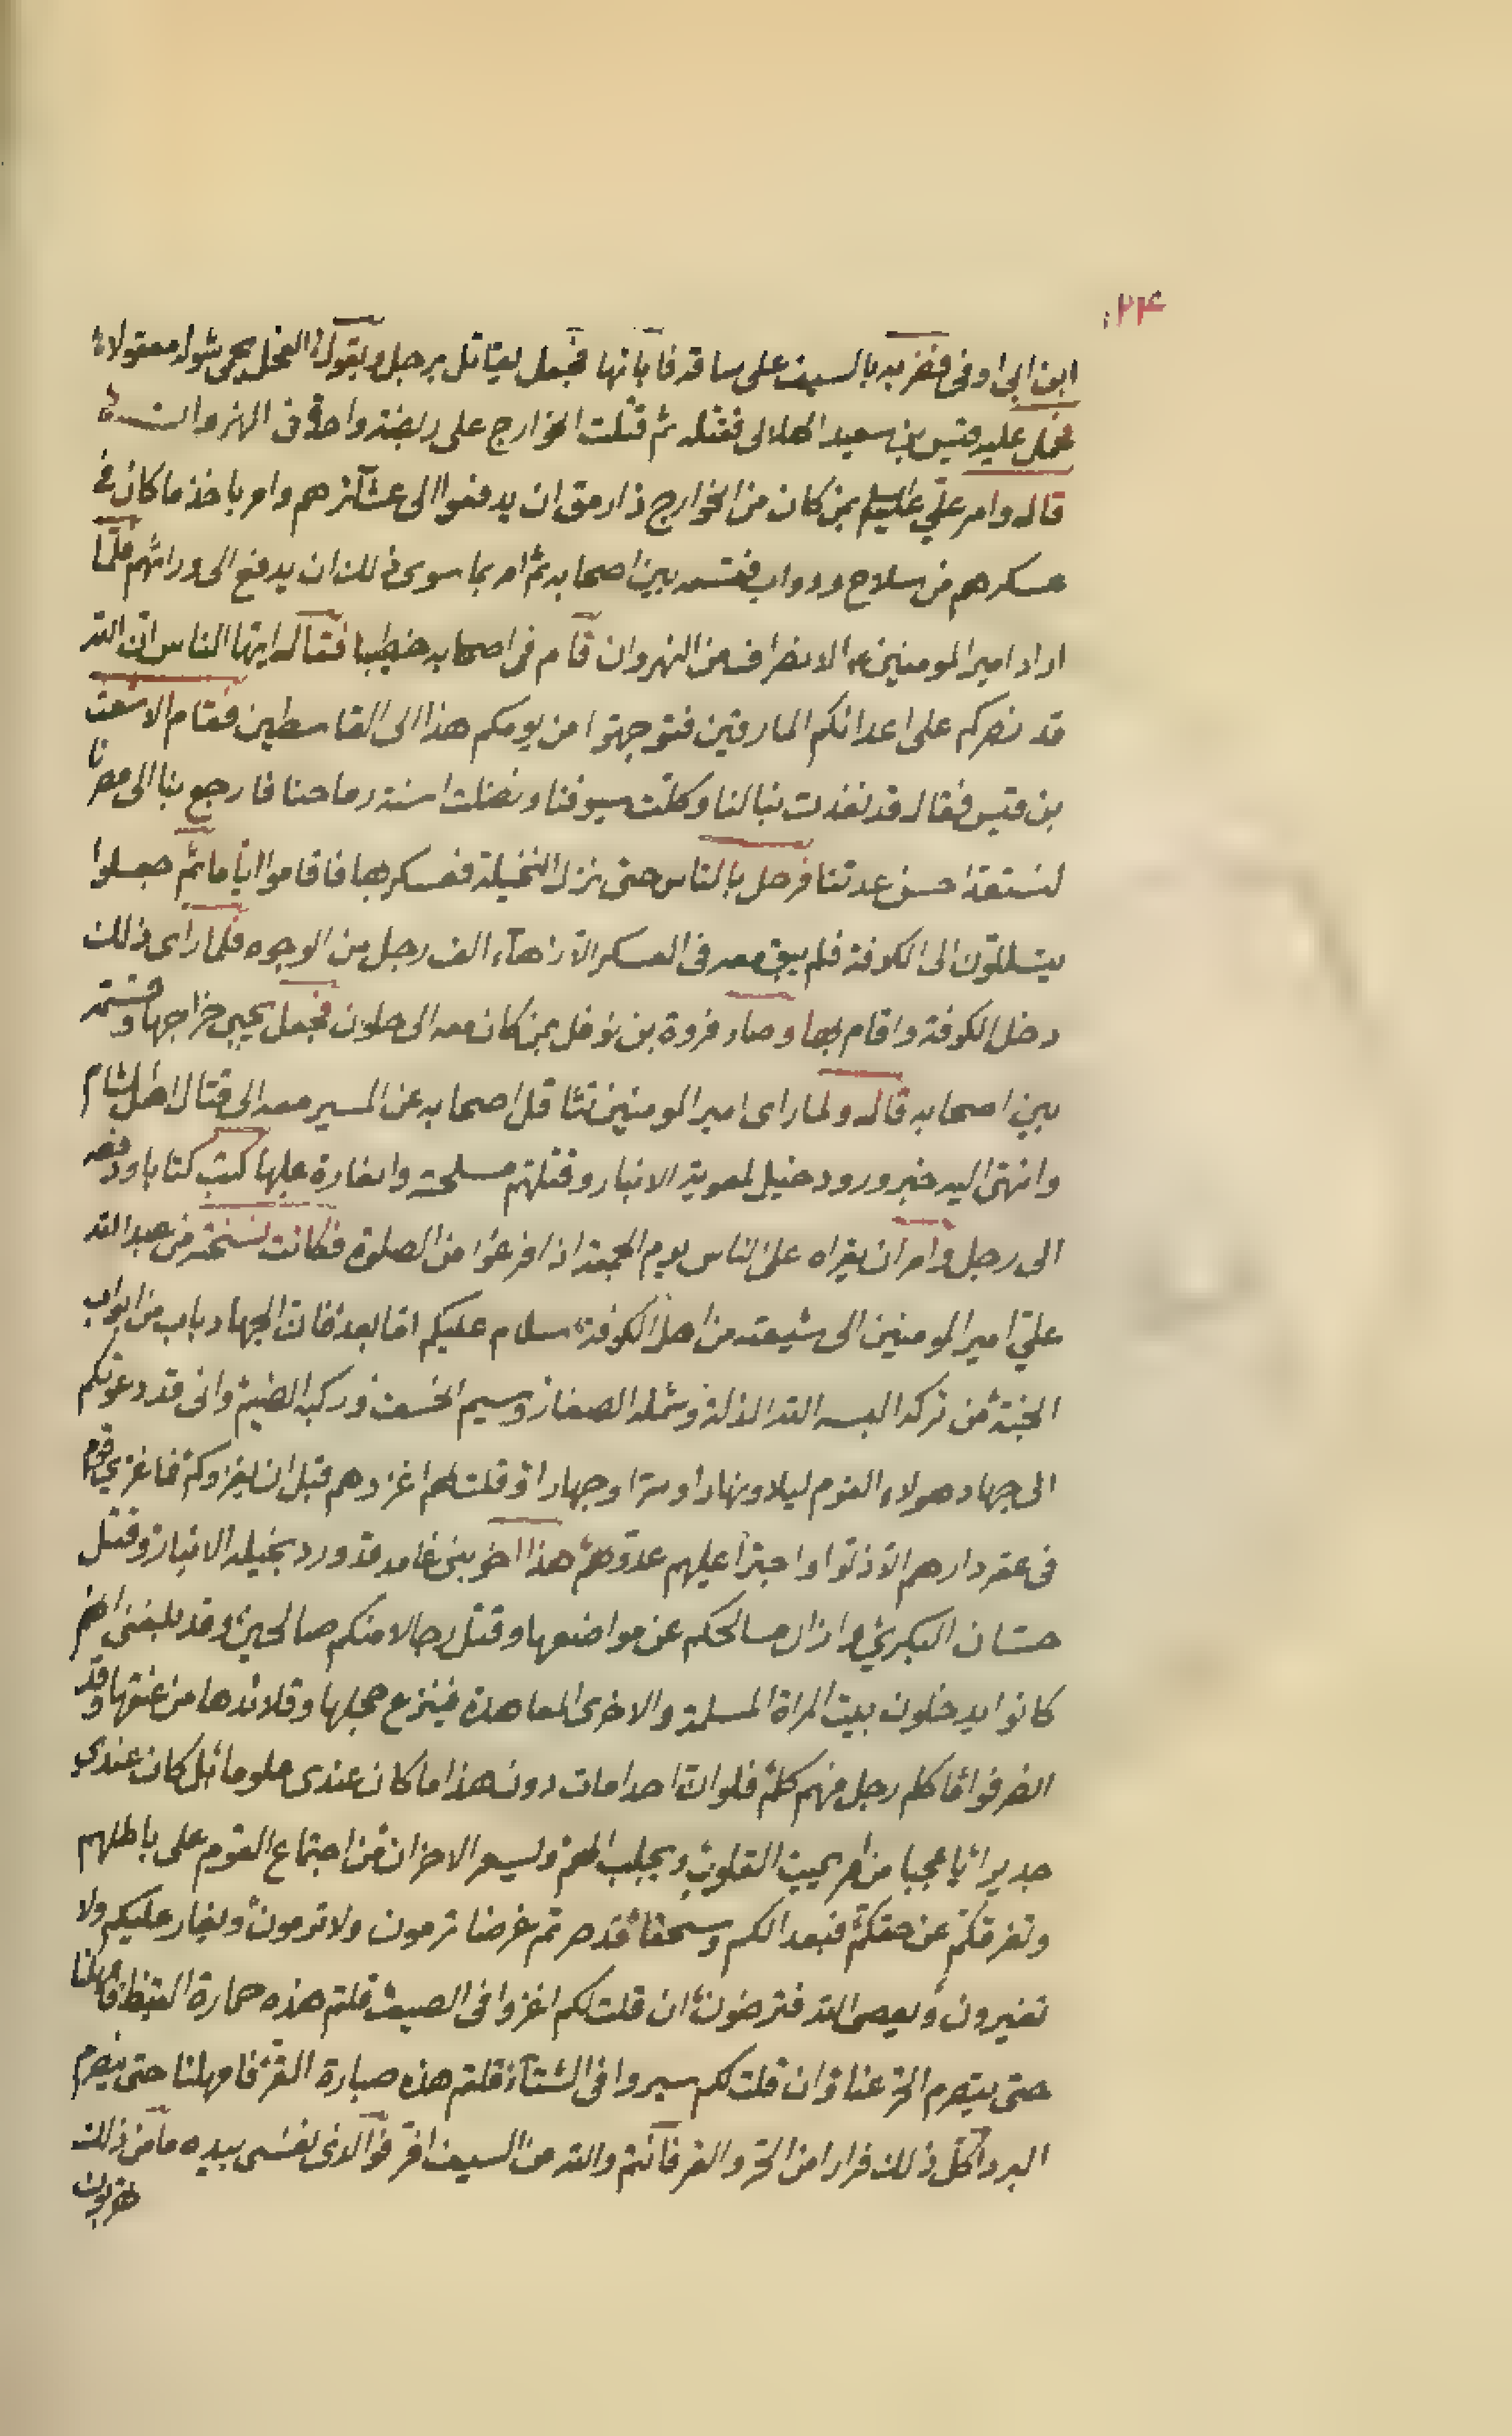 ٢٤
ابن ابي اوفى فضربه بالسيف على ساقه فابانها فجعل يقاتل برجل ويقول الفحل يحمى شوله معقولا
فحمل عليه قيس بن سعيد الهلالى فقتله ثم قتلت الخوارج على ربضة واحدة فى النهروان
قال وامر علي عليه السلام بمن كان من الخوارج ذا رمق ان يدفعوا الى عشآئرهم وامر باخذ ما كان فى
عسكرهم من سلاح ودواب فقسمه بين اصحابه ثم امر بما سوى ذلك ان يدفع الى وراثهم فلما
اراد امير المومنين الانصراف من النهروان قام فى اصحابه خطيبا فقال ايها الناس ان الله
قد نصركم على اعدائكم المارقين فتوجهوا من يومكم هذا الى القاسطين فقام الاشعث
بن قيس فقال قد نفذت نبالنا وكلت سيوفنا ونصلت اسنة رماحنا فارجع بنا الى مصرنا
لنستعد احسن عدتنا فرحل بالناس حتى نزل النخيلة فعسكر بها فاقاموا اياما ثم جعلوا
يتسللون الى الكوفة فلم يبق معه فى العسكر الا زهآء الف رجل من الوجوه فلما راى ذلك
دخل الكوفة واقام بها وصار فروة بن نوفل بمن كان معه الى حلوان فجعل يجبى خراجها وقسمه
بين اصحابه قال ولما راى امير المومنين تثاقل اصحابه عن المسير معه الى قتال اهل الشام
وانتهى اليه خبر ورود خيل لمعوية الانبار وقتلهم مسلحة والغارة عليها كتب كتابا ودفعه
الى رجل وامر ان يقراه على الناس يوم الجمعة اذا فرغوا من الصلوة فكانت نسخته من عبد الله
علي امير المومنين الى شيعته من اهل الكوفة سلام عليكم اما بعد فان الجهاد باب من ابواب
الجنة من تركه البسه الله الذلة وشمله الصغار وسيم الخسف وركبه الضيم وانى قد دعوتكم
الى جهاد هولاء القوم ليلا ونهارا وسرا وجهارا وقلت لهم اغزوهم قبل ان يغزوكم فما غزي قوم
فى عقر دارهم الا ذلوا واجترا عليهم عدوهم هذا اخو بنى غامد قد ورد بخيله الانبار وقتل
حسان البكري وازال مسالحكم عن مواضعها وقتل رجالا منكم صالحين وقد بلغنى انهم
كانوا يدخلون بيت المراة المسلمة والاخرى المعاهدة فينزع حجلها وقلائدها من عنقها وقد
انصرفوا ما كلم رجل منهم كلم فلو ان احدا مات دون هذا ما كان عندى ملوما بل كان عندي
جديرا يا عجبا من امر يميت القلوب ويجلب الهم ويسعر الاحزان من اجتماع القوم على باطلهم
وتفرقكم عن حقكم فبعدا لكم وسحقا قد صرتم غرضا ترمون ولا ترمون ويغار عليكم ولا
تغيرون ويعصى الله فترضون ان قلت لكم اغزوا فى الصيف قلتم هذه حمارة القيظ فامهلنا
حتى ينصرم الحر عنا وان قلت لكم سيروا فى الشتآء قلتم هذه صبارة القر فامهلنا حتى ينصرم
البرد اكل ذلك فرارا من الحر والقر فانتم والله من السيف افر فوالذى نفسى بيده ما من ذلك
هربون